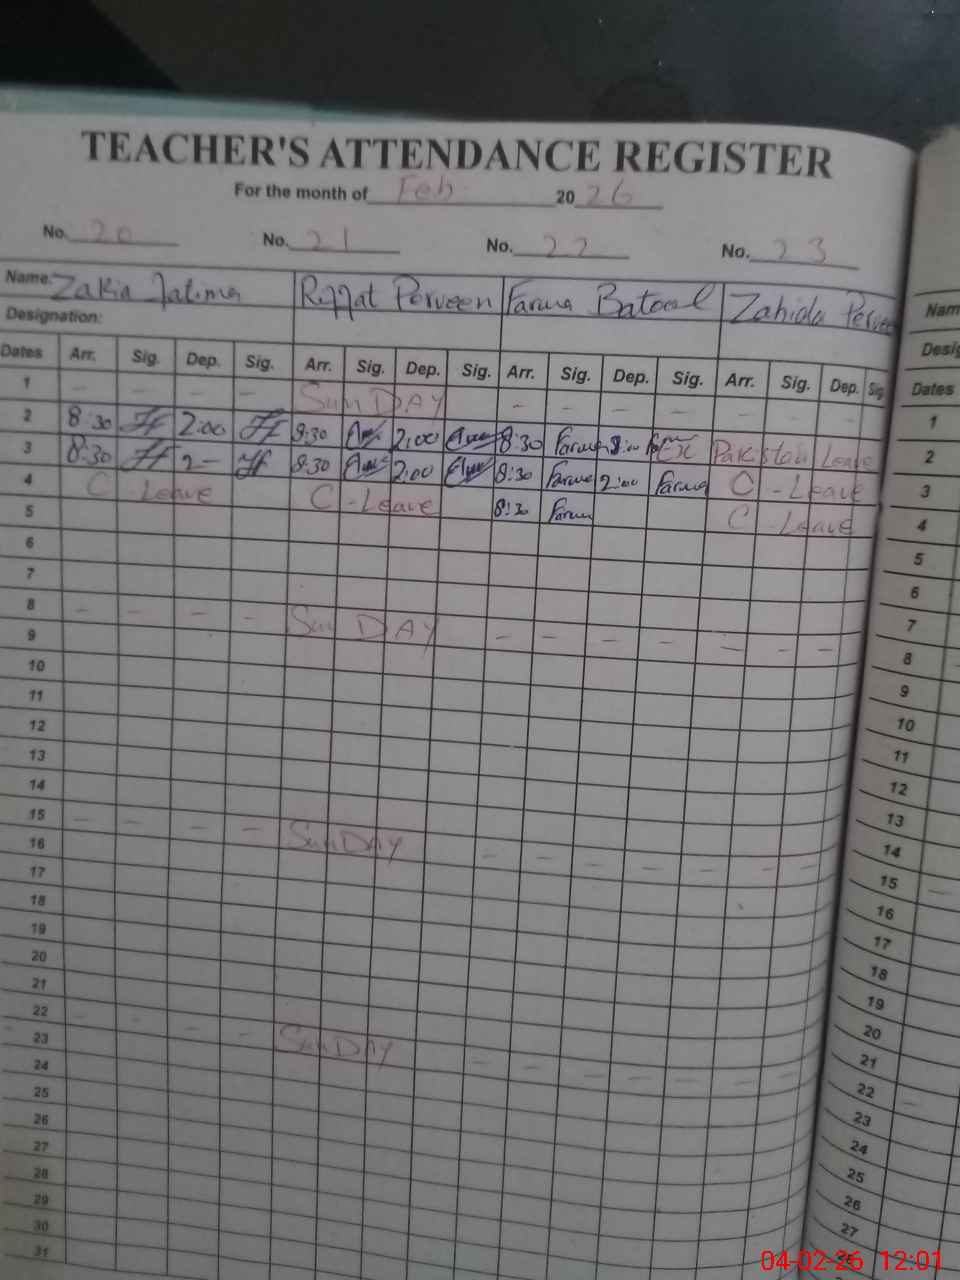 TEACHER'S ATTENDANCE REGISTER
For the month of Feb 2026
No. 20 No. 21 No. 22 No. 23
Name: Zakia Fatima Riffat Perveen Farwa Batool Zahida Pervee
Designation:
Dates Arr. Sig. Dep. Sig. Arr. Sig. Dep. Sig. Arr. Sig. Dep. Sig. Arr. Sig. Dep. Sig
1 - - - - SunDAY - - - - - - -
2 8:30 2:00 8:30 2:00 8:30 Farwa Ex Pakistan Leave
3 8:30 2- 8:30 2:00 8:30 Farwa 2:00 Farwa C - Leave
4 C - Leave C - Leave 8:30 Farwa C - Leave
5
6
7
8 - - - - SunDAY - - - - - - -
9
10
11
12
13
14
15 - - - - SunDAY - - - - - - -
16
17
18
19
20
21
22 - - - - SunDAY - - - - - - -
23
24
25
26
27
28
29
30
31
Nam
Desig
Dates
1
2
3
4
5
6
7
8
9
10
11
12
13
14
15
16
17
18
19
20
21
22
23
24
25
26
27
04-02-26 12:01